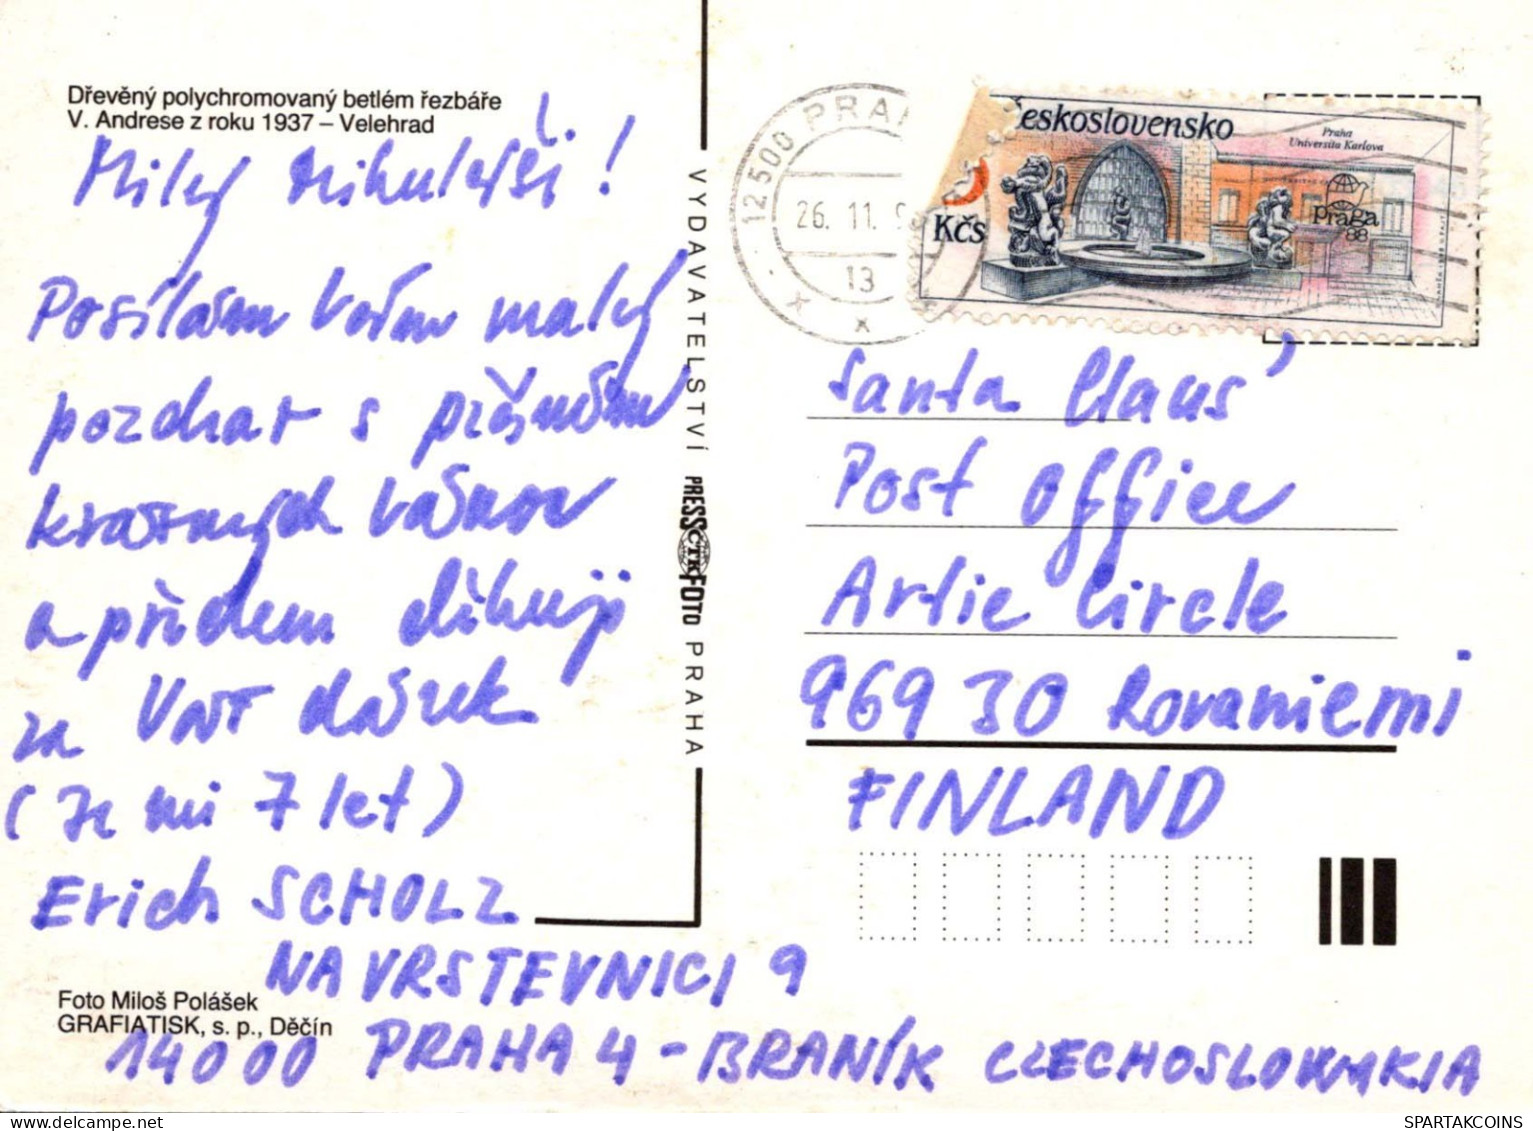 Dřevěný polychromovaný betlém řezbáře
V. Andrese z roku 1937 – Velehrad
Milý Mikuláši!
Posílám Vám malý
pozdrav s přáním
krásných Vánoc
a předem děkuji
za Váš dárek
(je mi 7 let)
Erich SCHOLZ
NA VRSTEVNICI 9
14000 PRAHA 4 - BRANÍK CZECHOSLOVAKIA
Foto Miloš Polášek
GRAFIATISK, s. p., Děčín
VYDAVATELSTVÍ PRESSFOTO PRAHA
ČTK
12500 PRA
26. 11. 9
13
eskoslovensko
Praha
Universita Karlova
Kčs
praga
88
Santa Claus'
Post Office
Artic Circle
96930 Rovaniemi
FINLAND
SPARTAKCOINS